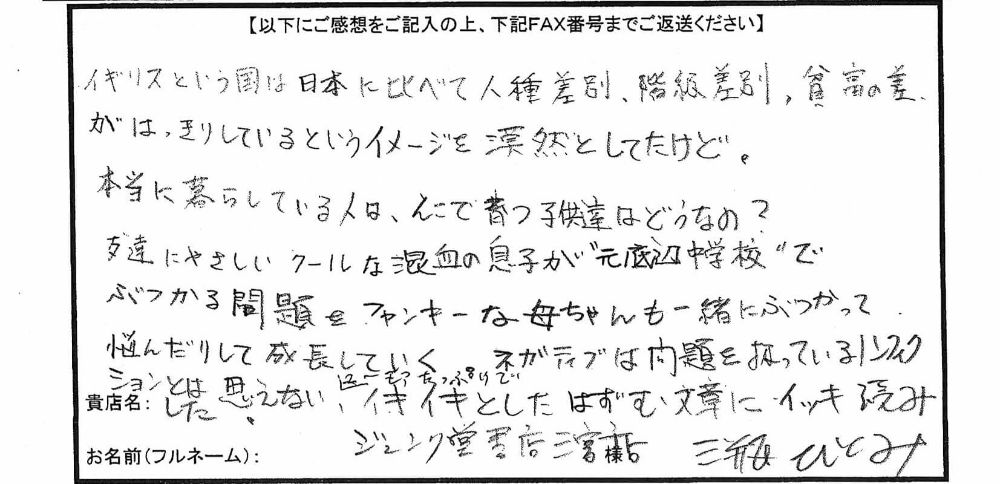 【以下にご感想をご記入の上、下記FAX番号までご返送ください】
イギリスという国は日本に比べて人種差別、階級差別、貧富の差、
がはっきりしているというイメージを漠然としてたけど。
本当に暮らしている人は、そこで育つ子供達はどうなの?
友達にやさしいクールな混血の息子が“元底辺中学校”で
ぶつかる問題をファンキーな母ちゃんも一緒にぶつかって
悩んだりして成長していく ネガティブは問題を扱っているノンフィク
ションとは思えない、ユーモアたっぷりで
イキイキとしたはずむ文章にイッキ読み
貴店名: した。
ジュンク堂書店三宮店
様
お名前(フルネーム): 三瓶ひとみ